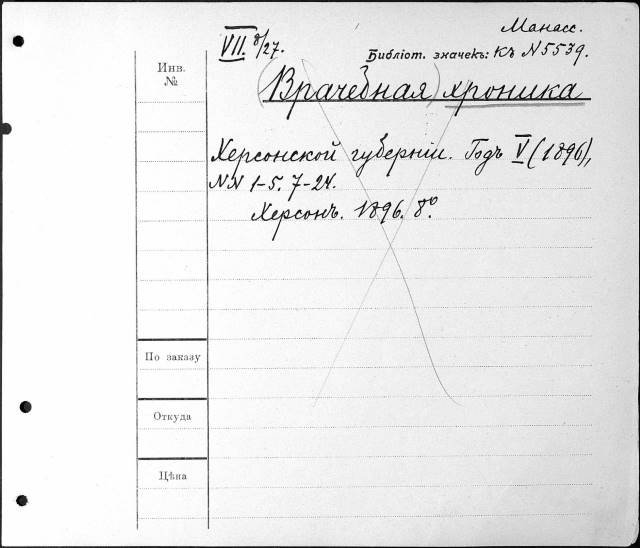 Манасс.
VII. 8/27.
Библіот. значекъ: къ N 5539.
Инв.
№
(Врачебная) хроника
Херсонской губерніи. Годъ V (1896),
NN 1-5. 7-24.
Херсонъ. 1896. 8º.
По заказу
Откуда
Цѣна